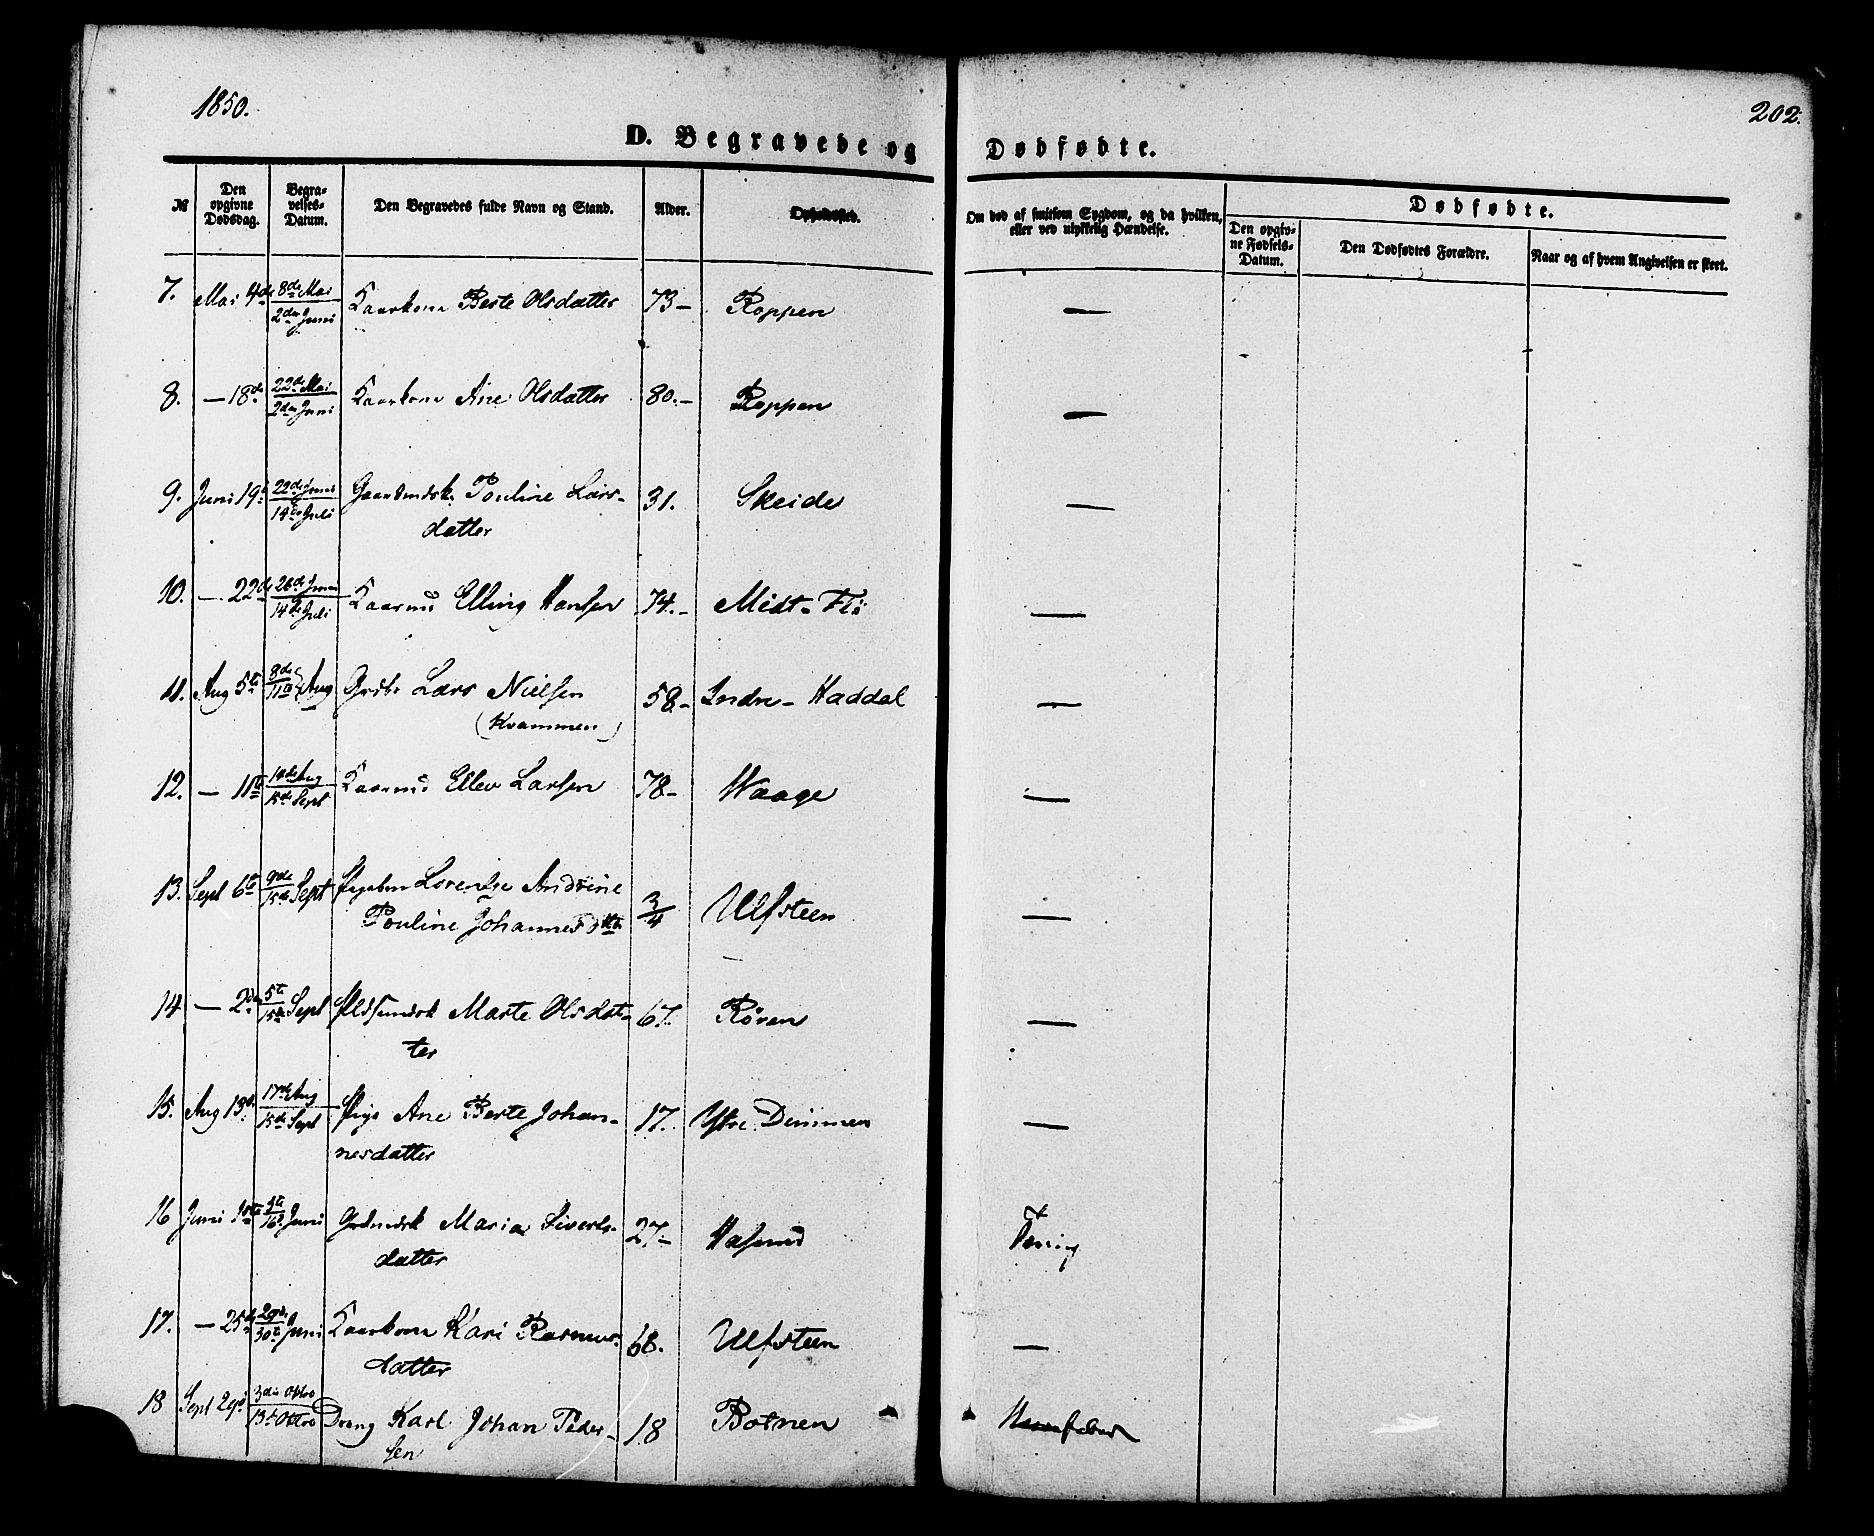 1850.
202.
D. Begravede og Dødfødte.
№
Den opgivne Dødsdag.
Begravelses-Datum.
Den Begravedes fulde Navn og Stand.
Alder.
Opholdssted.
Om død af smitsom Sygdom, og da hvilken, eller ved ulykkelig Hændelse.
Dødfødte.
Den opgivne Fødsels-Datum.
Den Dødfødtes Forældre.
Naar og af hvem Angivelsen er skeet.
7. Mai 4de 8de Mai Kaarkone Berte Olsdatter 73- Roppen —
2den Juni
8. — 18de 22de Mai Kaarkone Ane Olsdatter 80.- Roppen —
2den Juni
9. Juni 19 22de Juni Gaardmdsk. Pouline Lars- 31. Skeide —
14de Juli datter
10. — 22de 26de Juni Kaarmd Elling Hansen 74.- Midt-Flö —
14de Juli
11. Aug 5te 8de Aug Lars Nielsen 58- Indre-Haddal —
11te (Kvammen)
12. — 11te 14de Aug Kaarmd Ellev Larsen 78- Waage —
15de Sept
13. Sept 6te 9de Sept Pigebarn Lorentse Andrine 3/4 Ulfsteen —
15de Pouline Johannesdtr
14 — 2den 5te Sept Marte Olsdat- 67. Rören —
15de ter
15. Aug 13de 17de Aug Pige Ane Berte Johan- 17. Ytre Dimmen —
15de Sept nesdatter
16 Juni Juni Grdmdsk Maria Siverts- 27- Hasund
16de datter
17. — 25de 29de Juni Kaarkone Kari Rasmus- 68. Ulfsteen —
30te datter
18 Sept 29de 3die Octbr Dreng Karl Johan Peder- 18 Botnen
13de Octbr sen